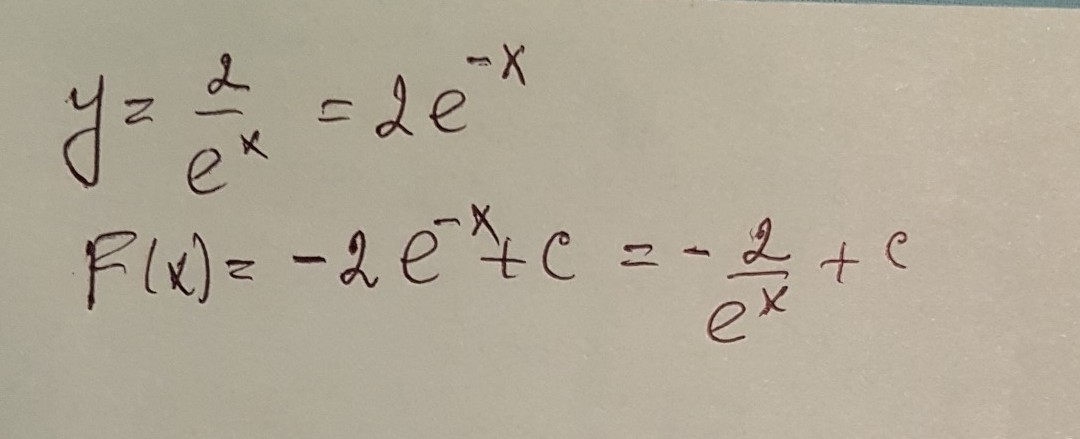 y = 2/eˣ = 2e⁻ˣ
F(x) = -2e⁻ˣ + c = - 2/eˣ + c